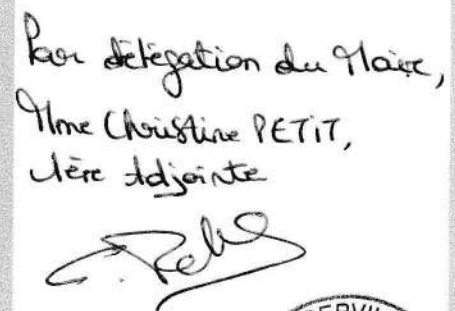 Par délégation du Maire,
Mme Christine PETIT,
1ère Adjointe